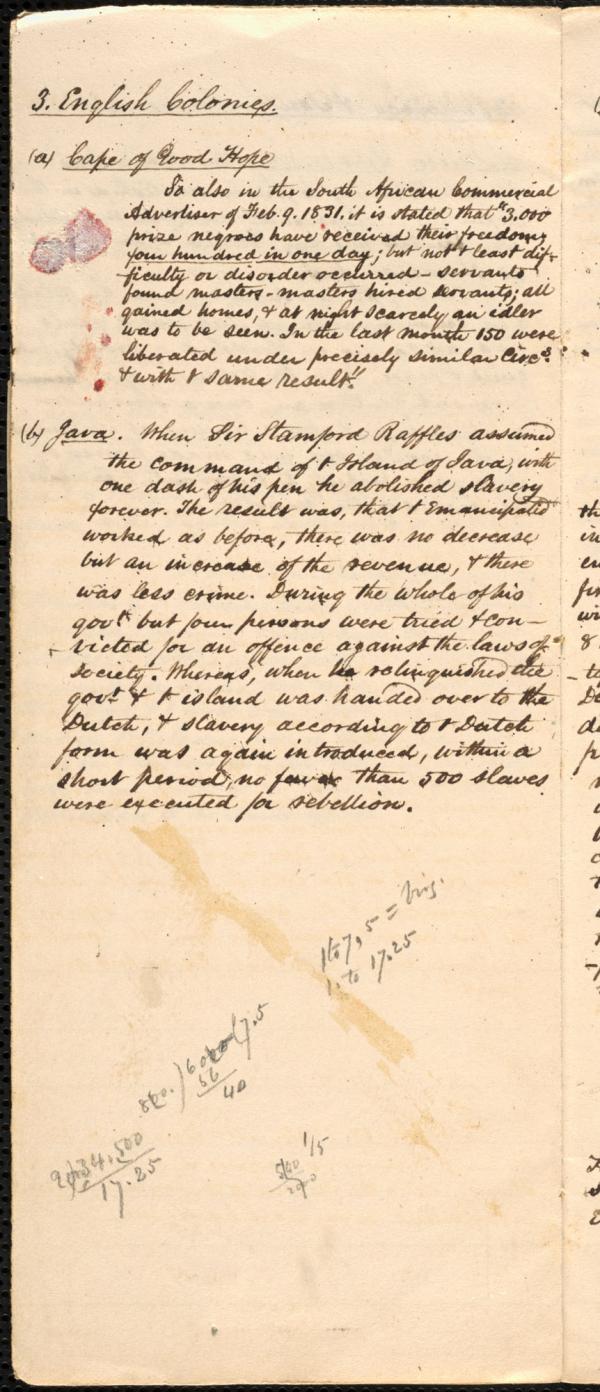 3. English Colonies.
(a) Cape of Good Hope
So also in the South African Commercial
Advertiser of Feb. 9. 1831. it is stated that "3,000
prize negroes have received their freedom;
four hundred in one day; but not t least dif-
ficulty or disorder occurred - servants
found masters - masters hired servants; all
gained homes, & at night scarcely an idler
was to be seen. In the last month 150 were
liberated under precisely similar Circs.
& with t same result."
(b) Java. When Sir Stamford Raffles assumed
the command of t Island of Java, with
one dash of his pen he abolished slavery
forever. The result was, that t Emancipated
worked as before, there was no decrease
but an increase of the revenue, & there
was less crime. During the whole of his
govt. but four persons were tried & con-
victed for an offence against the laws of
society. Whereas, when he relinquished the
govt. & t island was handed over to the
Dutch, & slavery according to t Dutch
form was again introduced, within a
short period, no fewer than 500 slaves
were executed for rebellion.
1 to 7,5 =
1. to 17.25
800.) 6000 (7.5
56
40
2) 34.500
17.25
1/5